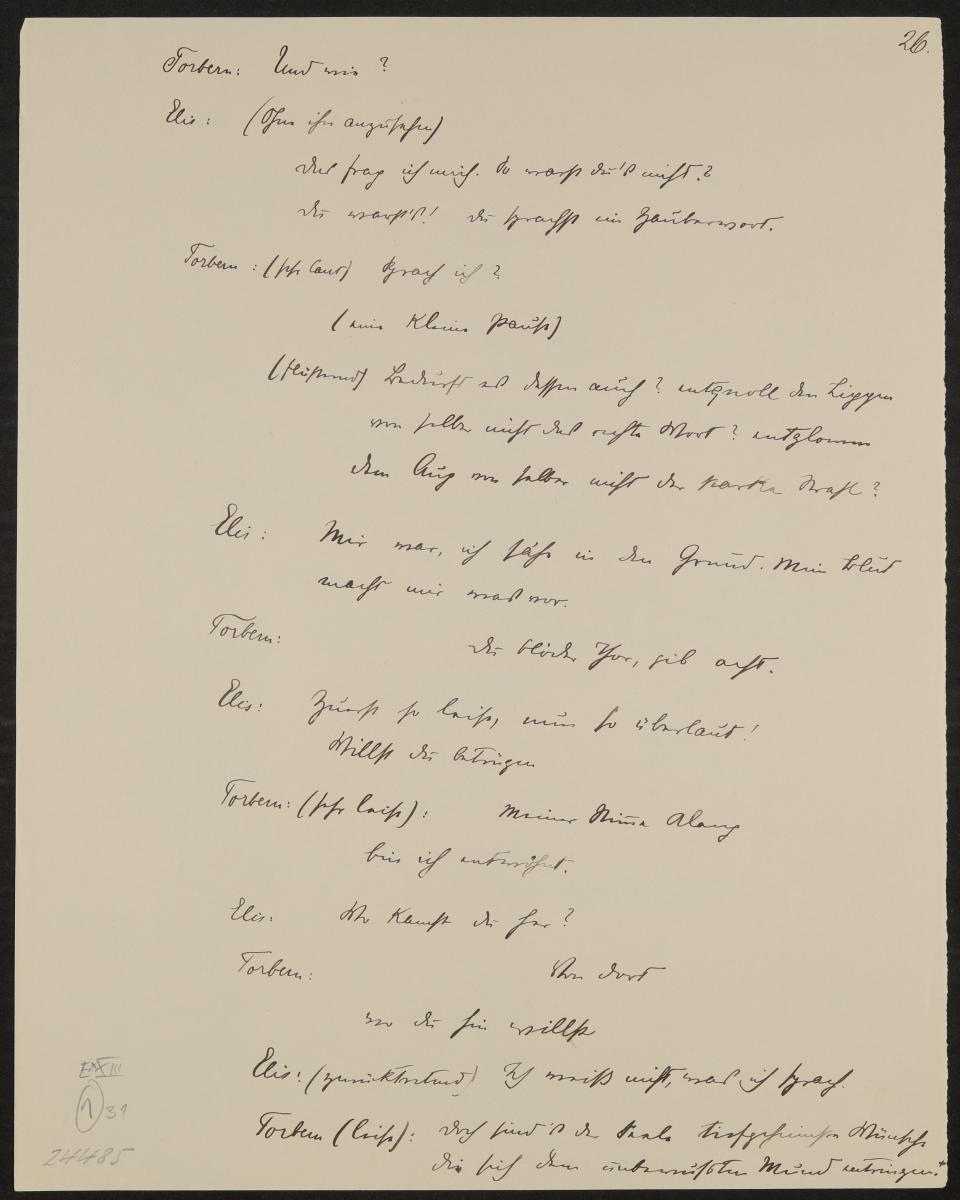 26.
Torbern: Und wie?
Elis: (Ohne ihn anzusehen)
Das frag ich mich. So warst du's nicht?
Du warst's! du sprachst ein Zauberwort.
Torbern: (sehr laut) Sprach ich?
(eine kleine Pause)
(flüsternd) Bedurft es dessen auch? entquoll den Lippen
von selber nicht das rechte Wort? entglomm
dem Aug von selber nicht der starke Strahl?
Elis: Mir war, ich sähe in den Grund. Mein Blut
macht mir was vor.
Torbern: Du blöder Thor, gib acht.
Elis: Zuerst so leise, nun so überlaut!
Willst du betrügen
Torbern: (sehr leise): Meiner Stimme Klang
bin ich entwöhnt.
Elis: Wo kamst du her?
Torbern: Von dort
wo du hin willst
Elis: (zurücktretend) Ich weiss nicht, was ich sprach.
Torbern (leise): Doch sind's der Seele tiefgeheimste Wünsche
die sich dem unbewußten Mund entringen.
EXXIII
1 31
24485